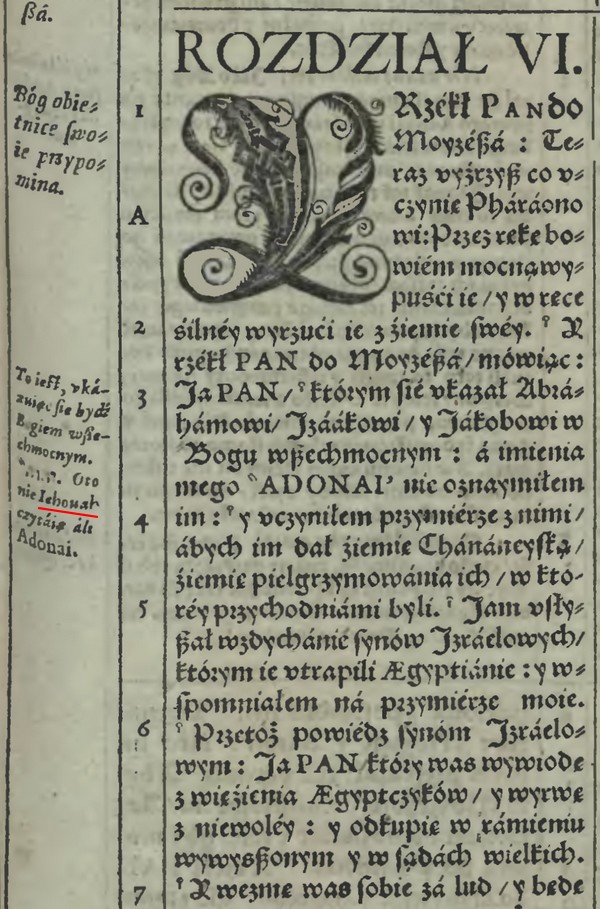 ßá.
Bóg obie⸗
tnice swo⸗
ie przypo⸗
mina.
To iest, vká-
zuiąc się bydź
Bogiem wsze-
chmocnym.
Oto
nie Iehouah
czytáią ále
Adonai.
ROZDZIAŁ VI.
1
A
2
3
4
5
6
7
Rzékł PAN do
Moyzéßá : Te⸗
raz vyźrzyß co v⸗
czynię Pháráono
wi: Przez rękę bo⸗
wiém mocną wy⸗
puśći ie / y w ręce
śilnéy wyrzući ie z źiemie swéy. ⸗ A
rzékł PAN do Moyzéßá / mówiąc :
Ja PAN / którym się vkazał Abrá⸗
hámowi / Jzáákowi / y Jákobowi w
Bogu wßechmocnym : á imienia
mego ADONAI nie oznaymiłem
im : y vczyniłem przymiérze z nimi /
ábych im dał źiemię Chánáneyską /
źiemię pielgrzymowánia ich / w któ-
réy przychodniámi byli. Jam vsły⸗
ßał wzdychánié synów Jzráelowych /
którym ie vtrapili Ægyptiánie : y w⸗
spomniałem ná przymiérze moie.
Przetóż powiédz synóm Jzráelo⸗
wym : Ja PAN który was wywiodę
z więźienia Ægyptczyków / y wyrwę
z niewoléy : y odkupię w rámieniu
wywyßßonym y w sądách wielkich.
A wezmę was sobie zá lud / y będę